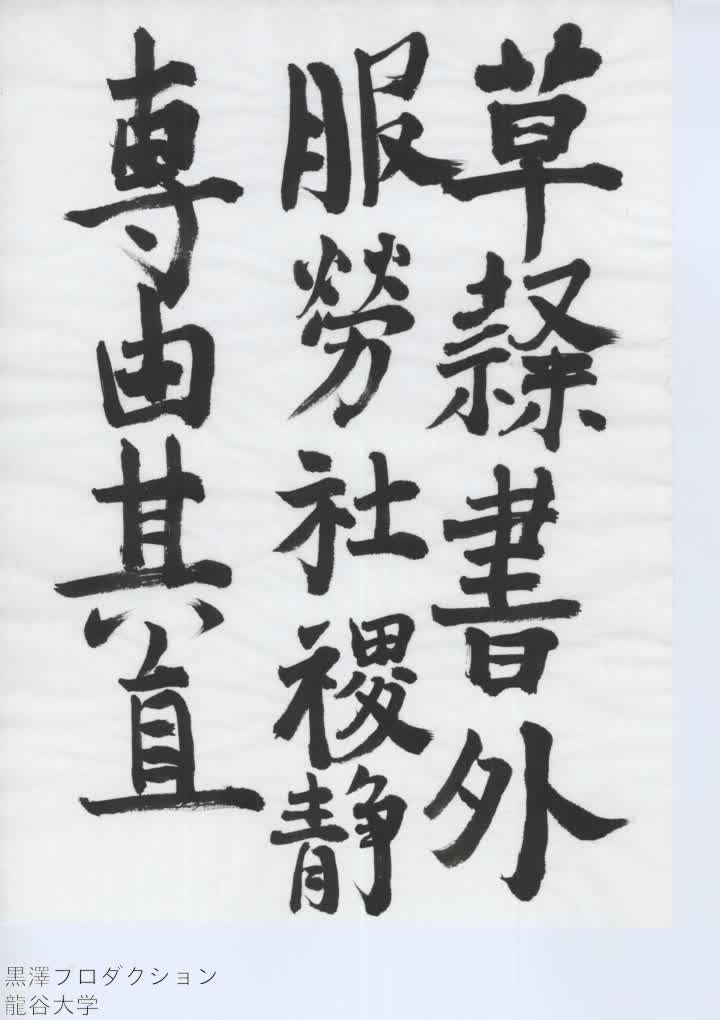 草隸書外
服勞社稷静
専由其直
黒澤プロダクション
龍谷大学